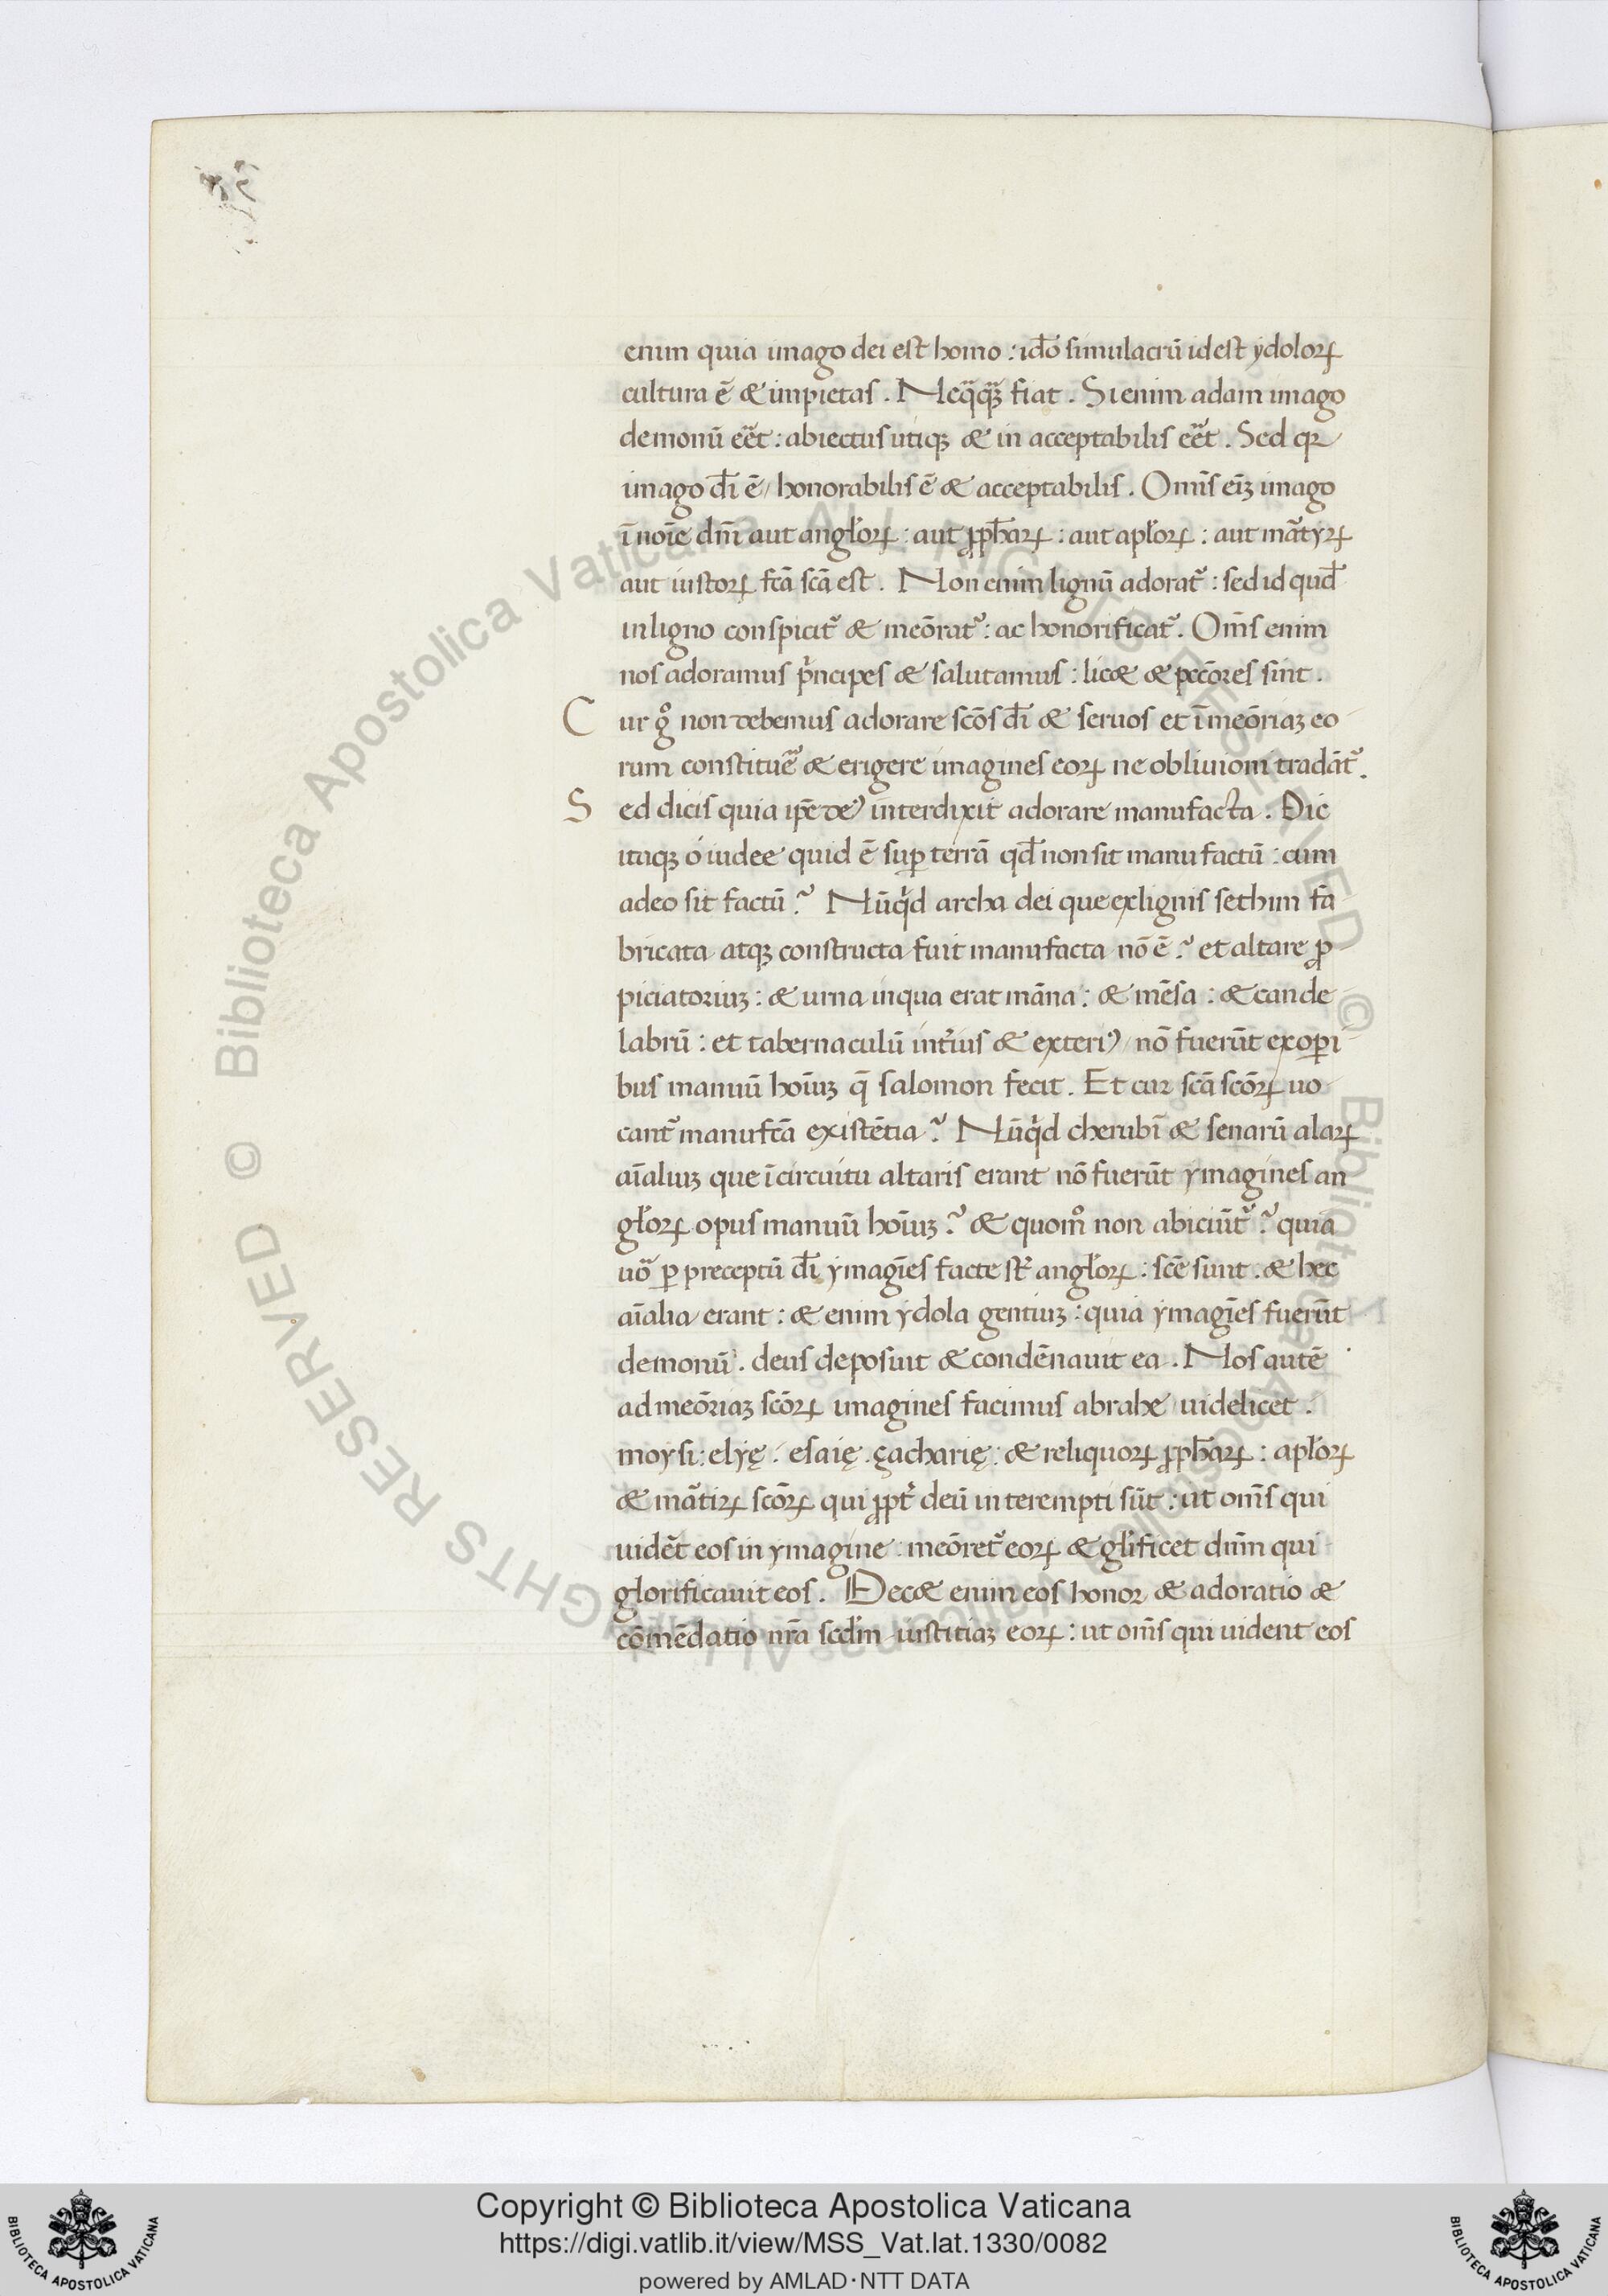 enim quia imago dei est homo : id̄o simulacrū idest ydoloꝝ
cultura ē & impietas . Neq̄qꝫ fiat . Si enim adam imago
demonū eēt : abiectus utiqꝫ & in acceptabilis eēt . Sed qꝛ
imago d̄i ē / honorabilis ē & acceptabilis . Om̄s eīꝫ imago
ī noīe dn̄i aut angl̓oꝝ : aut ꝓph̄aꝝ : aut apl̓oꝝ : aut mãtyꝝ
aut iustoꝝ fc̄a sc̄a est . Non enim lignū adorat᷑ : sed id qud̄
in ligno conspicit᷑ & meōrat᷑ : ac honorificat᷑ . Om̄s enim
nos adoramus pͥncipes & salutamus : lic& & pcc̄ores sint .
C ur gͦ non debemus adorare sc̄os d̄i & seruos et ī meōriaꝫ eo
rum constitue᷑ & erigere imagines eoꝝ ne obliuioni tradāt᷑ .
S ed dicis quia ip̄e deꝰ interdixit adorare manufacta . Dic
itaqꝫ ó iudee quid ē suꝑ terrā qd̄ non sit manu factū : cum
adeo sit factū ? Nūqͥd archa dei que ex lignis sethim fa
bricata atqꝫ constructa fuit manufacta nō ē ? et altare ꝓ
piciatoriuꝫ : & urna in qua erat māna : & mēsa : & cande
labrū : et tabernaculū int̓ius & exteriꝰ / nō fuerūt ex oꝑi
bus manuū hoīuꝫ q̄ salomon fecit . Et cur sc̄a sc̄oꝝ uo
cant᷑ manufc̄a existētia ? Nūqͥd cherubī & senarū alaꝝ
aīaliuꝫ que ī circuitu altaris erant nō fuerūt ymagines an
gl̓oꝝ opus manuū hoīuꝫ ? & quomͦ non abiciūt᷑ ? quia
uo᷑ ꝑ preceptū d̄i ymagīes facte st̄ angl̓oꝝ : sc̄e sunt . & hec
aīalia erant : & enim ydola gentiuꝫ : quia ymagīes fuerūt
demonū . deus deposuit & condēnauit ea . Nos autē
ad meōriaꝫ sc̄oꝝ imagines facimus abrahe uidelicet .
moysi : elyę . esaię . çacharię : & reliquoꝝ ꝓph̄aꝝ : apl̓oꝝ
& mãtiꝝ sc̄oꝝ qui ꝓpt̓ deū interempti sūt : ut om̄s qui
uidēt eos in ymagine meōret᷑ eoꝝ & gl̓ificet dn̄m qui
glorificauit eos . Dec& enim eos honor & adoratio &
cōmēdatio nr̄a scd̓m iustitiaꝫ eoꝝ : ut om̄s qui uident eos
Copyright © Biblioteca Apostolica Vaticana
https://digi.vatlib.it/view/MSS_Vat.lat.1330/0082
powered by AMLAD·NTT DATA